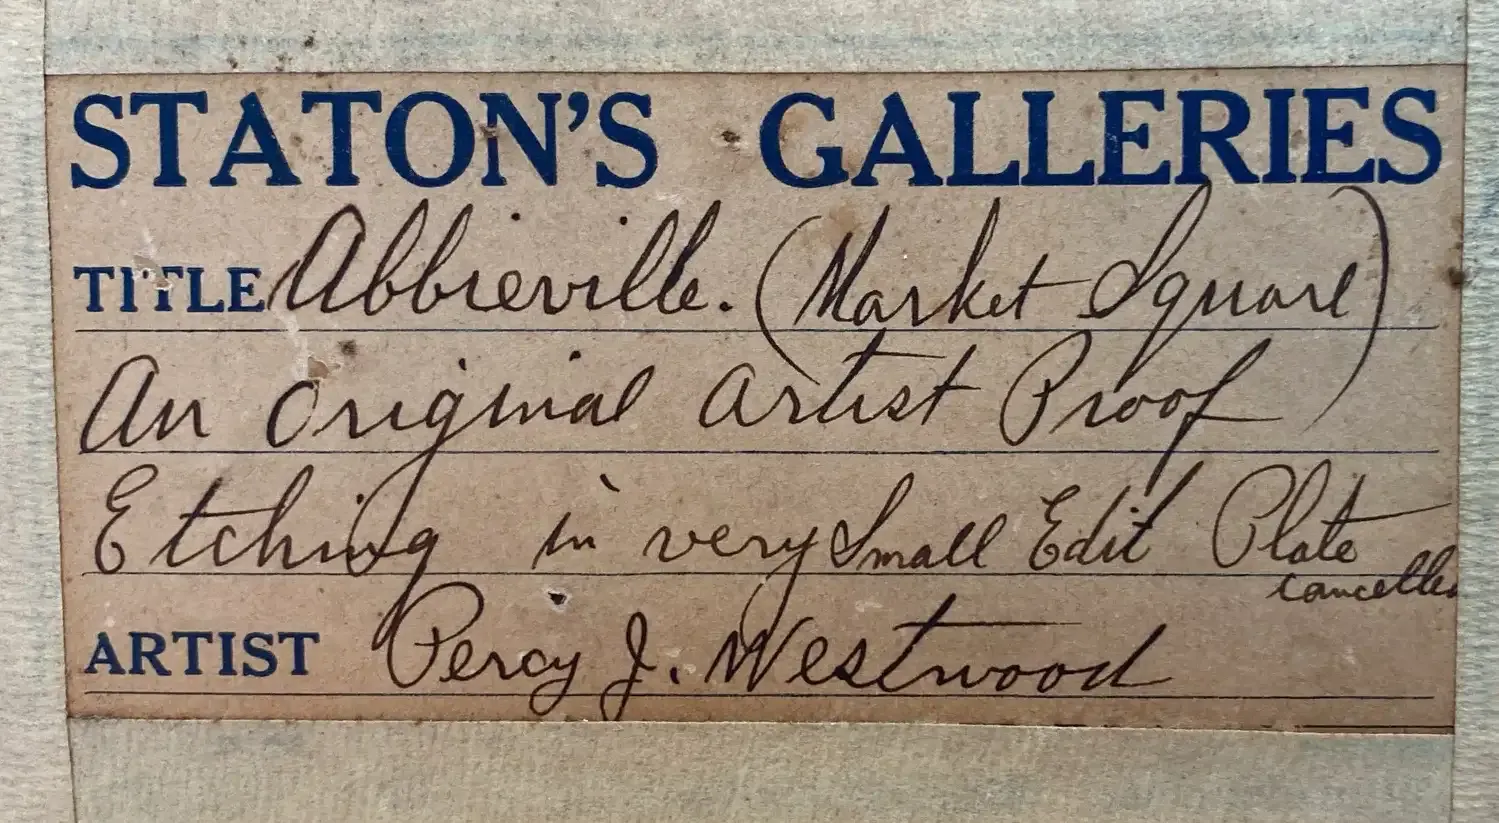 STATON'S GALLERIES
TITLE Abbieville. (Market Square)
An Original Artist Proof
Etching in very Small Edit Plate
cancelled
ARTIST Percy J. Westwood